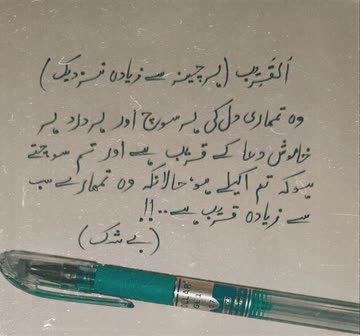 اَلقَرِیب (ہر چیز سے زیادہ نزدیک)
وہ تمہاری دل کی ہر سوچ اور ہر درد ہر
خاموش دعا کے قریب ہے اور تم سوچتے
ہو کہ تم اکیلے ہو حالانکہ وہ تمہارے سب
سے زیادہ قریب ہے..!!
(بے شک)